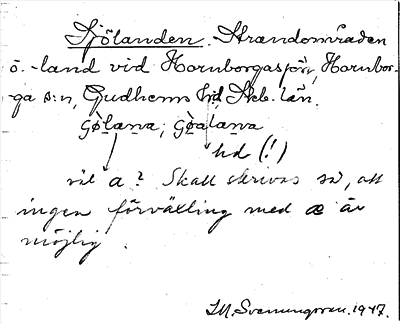 Sjölanden. Strandområden
o. -land vid Hornborgasjön, Hornbor-
ga s:n, Gudhems hd, Skb. län.
göl̲an̲a; göal̲an̲a
hd (!)
väl a? Skall skrivas så, att
ingen förväxling med æ är
möjlig.
I.M. Svenungsson. 1947.